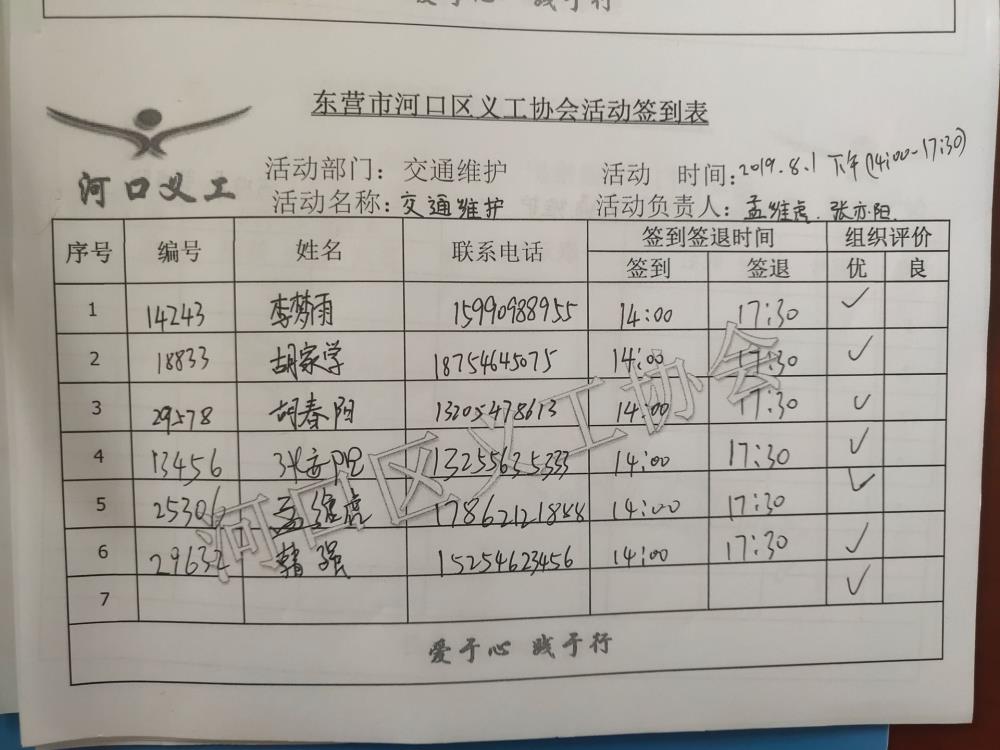 爱于心 践于行
东营市河口区义工协会活动签到表
河口义工
活动部门：交通维护 活动 时间：2019.8.1 下午(14:00-17:30)
活动名称：交通维护 活动负责人：孟维虎、张亦阳
序号 编号 姓名 联系电话 签到签退时间 组织评价
签到 签退 优 良
1 14243 李梦雨 15990988955 14:00 17:30 ✓
2 18833 胡家学 18754645075 14:00 17:30 ✓
3 29578 胡春阳 13205478613 14:00 17:30 ✓
4 13456 张亦阳 13255635333 14:00 17:30 ✓
5 25306 孟维虎 17862121888 14:00 17:30 ✓
6 29632 韩强 15254623456 14:00 17:30 ✓
7 ✓
河口区义工协会
爱于心 践于行